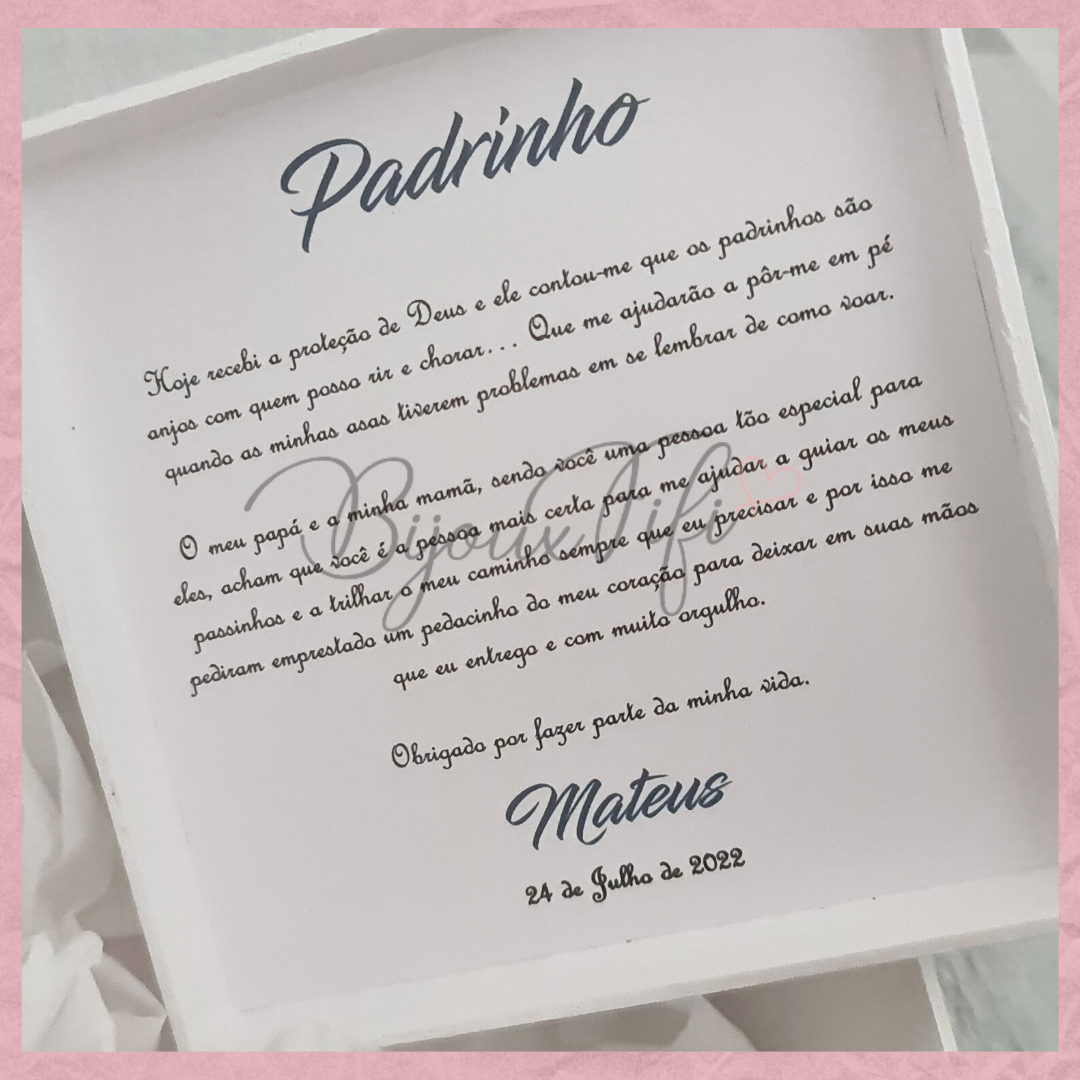 Padrinho
Hoje recebi a proteção de Deus e ele contou-me que os padrinhos são
anjos com quem posso rir e chorar... Que me ajudarão a pôr-me em pé
quando as minhas asas tiverem problemas em se lembrar de como voar.
O meu papá e a minha mamã, sendo você uma pessoa tão especial para
eles, acham que você é a pessoa mais certa para me ajudar a guiar os meus
passinhos e a trilhar o meu caminho sempre que eu precisar e por isso me
pediram emprestado um pedacinho do meu coração para deixar em suas mãos
que eu entrego e com muito orgulho.
Obrigado por fazer parte da minha vida.
Mateus
24 de Julho de 2022
BijouxFifi